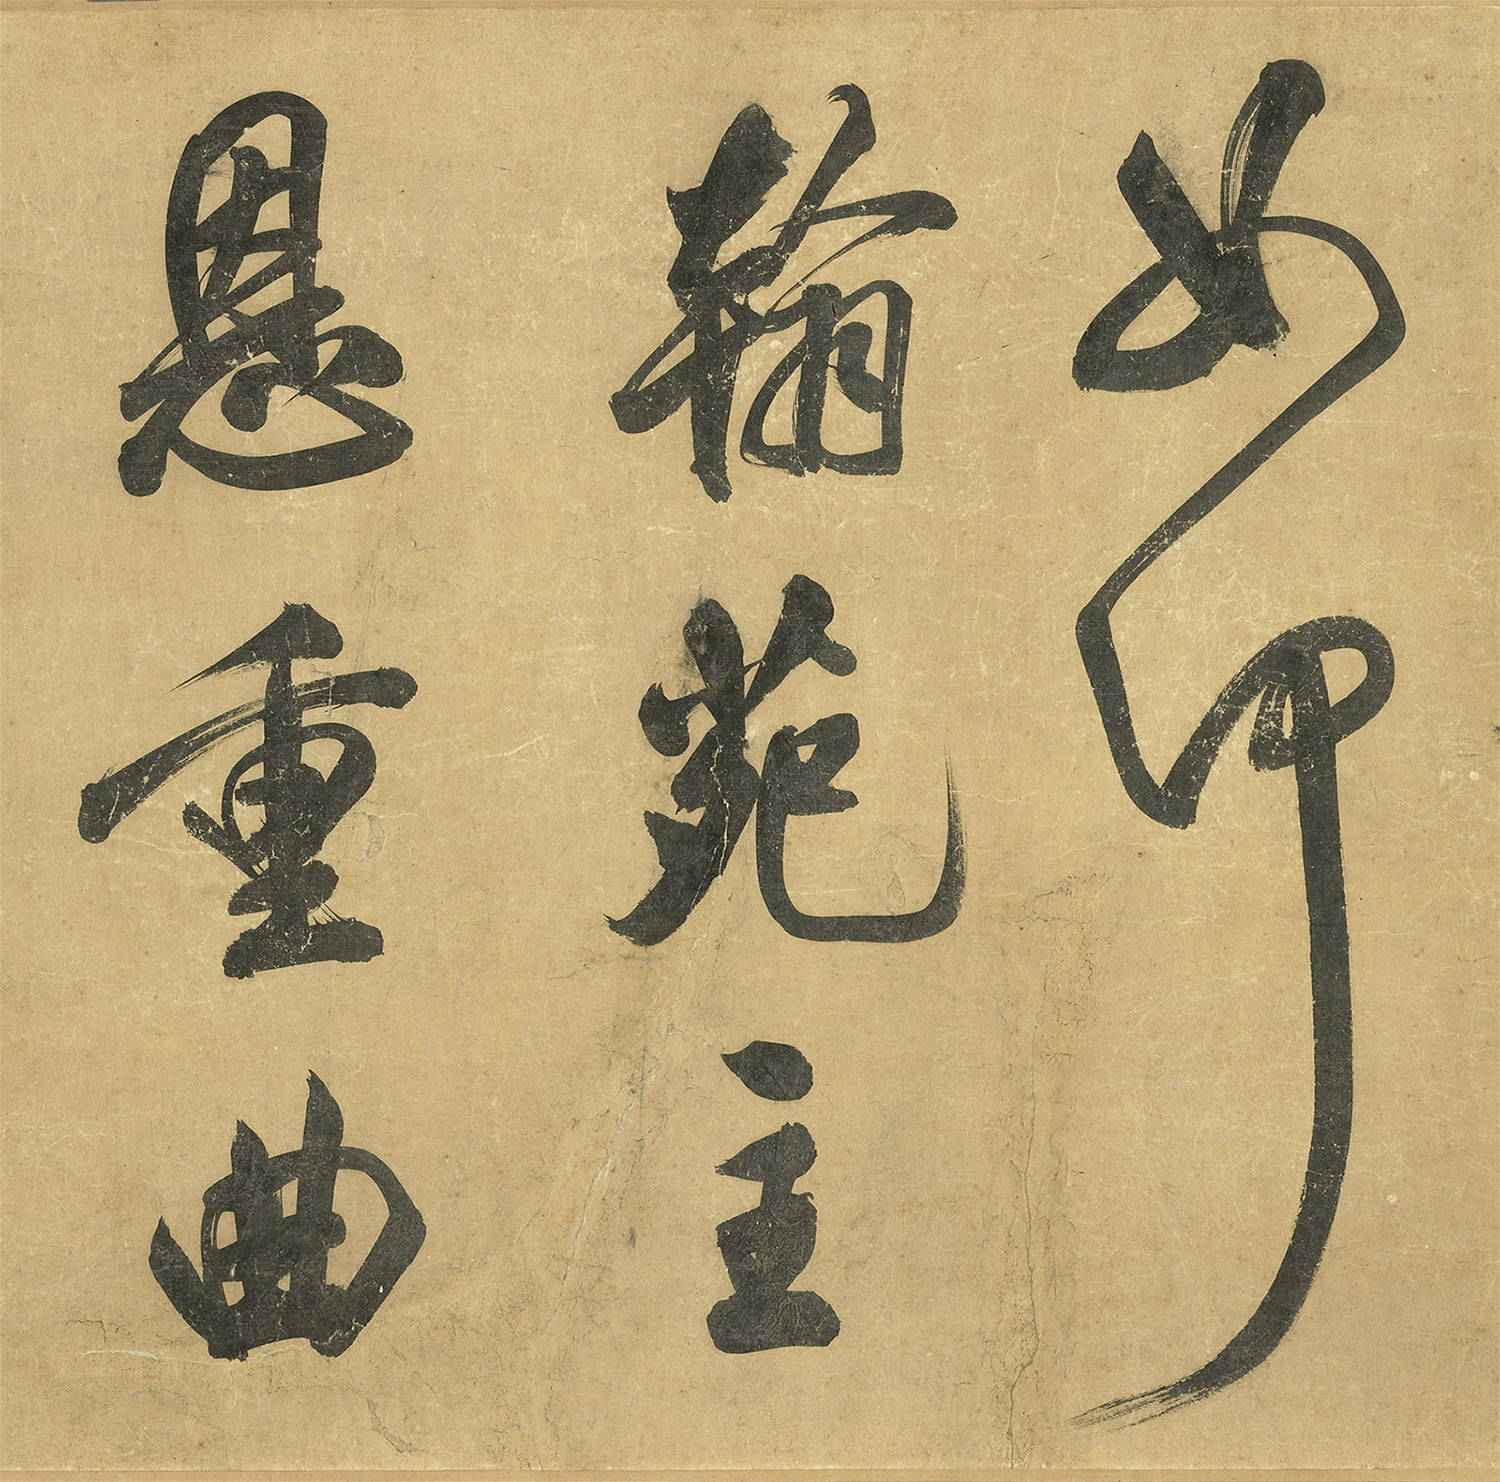 如何
翰苑主
恩重曲